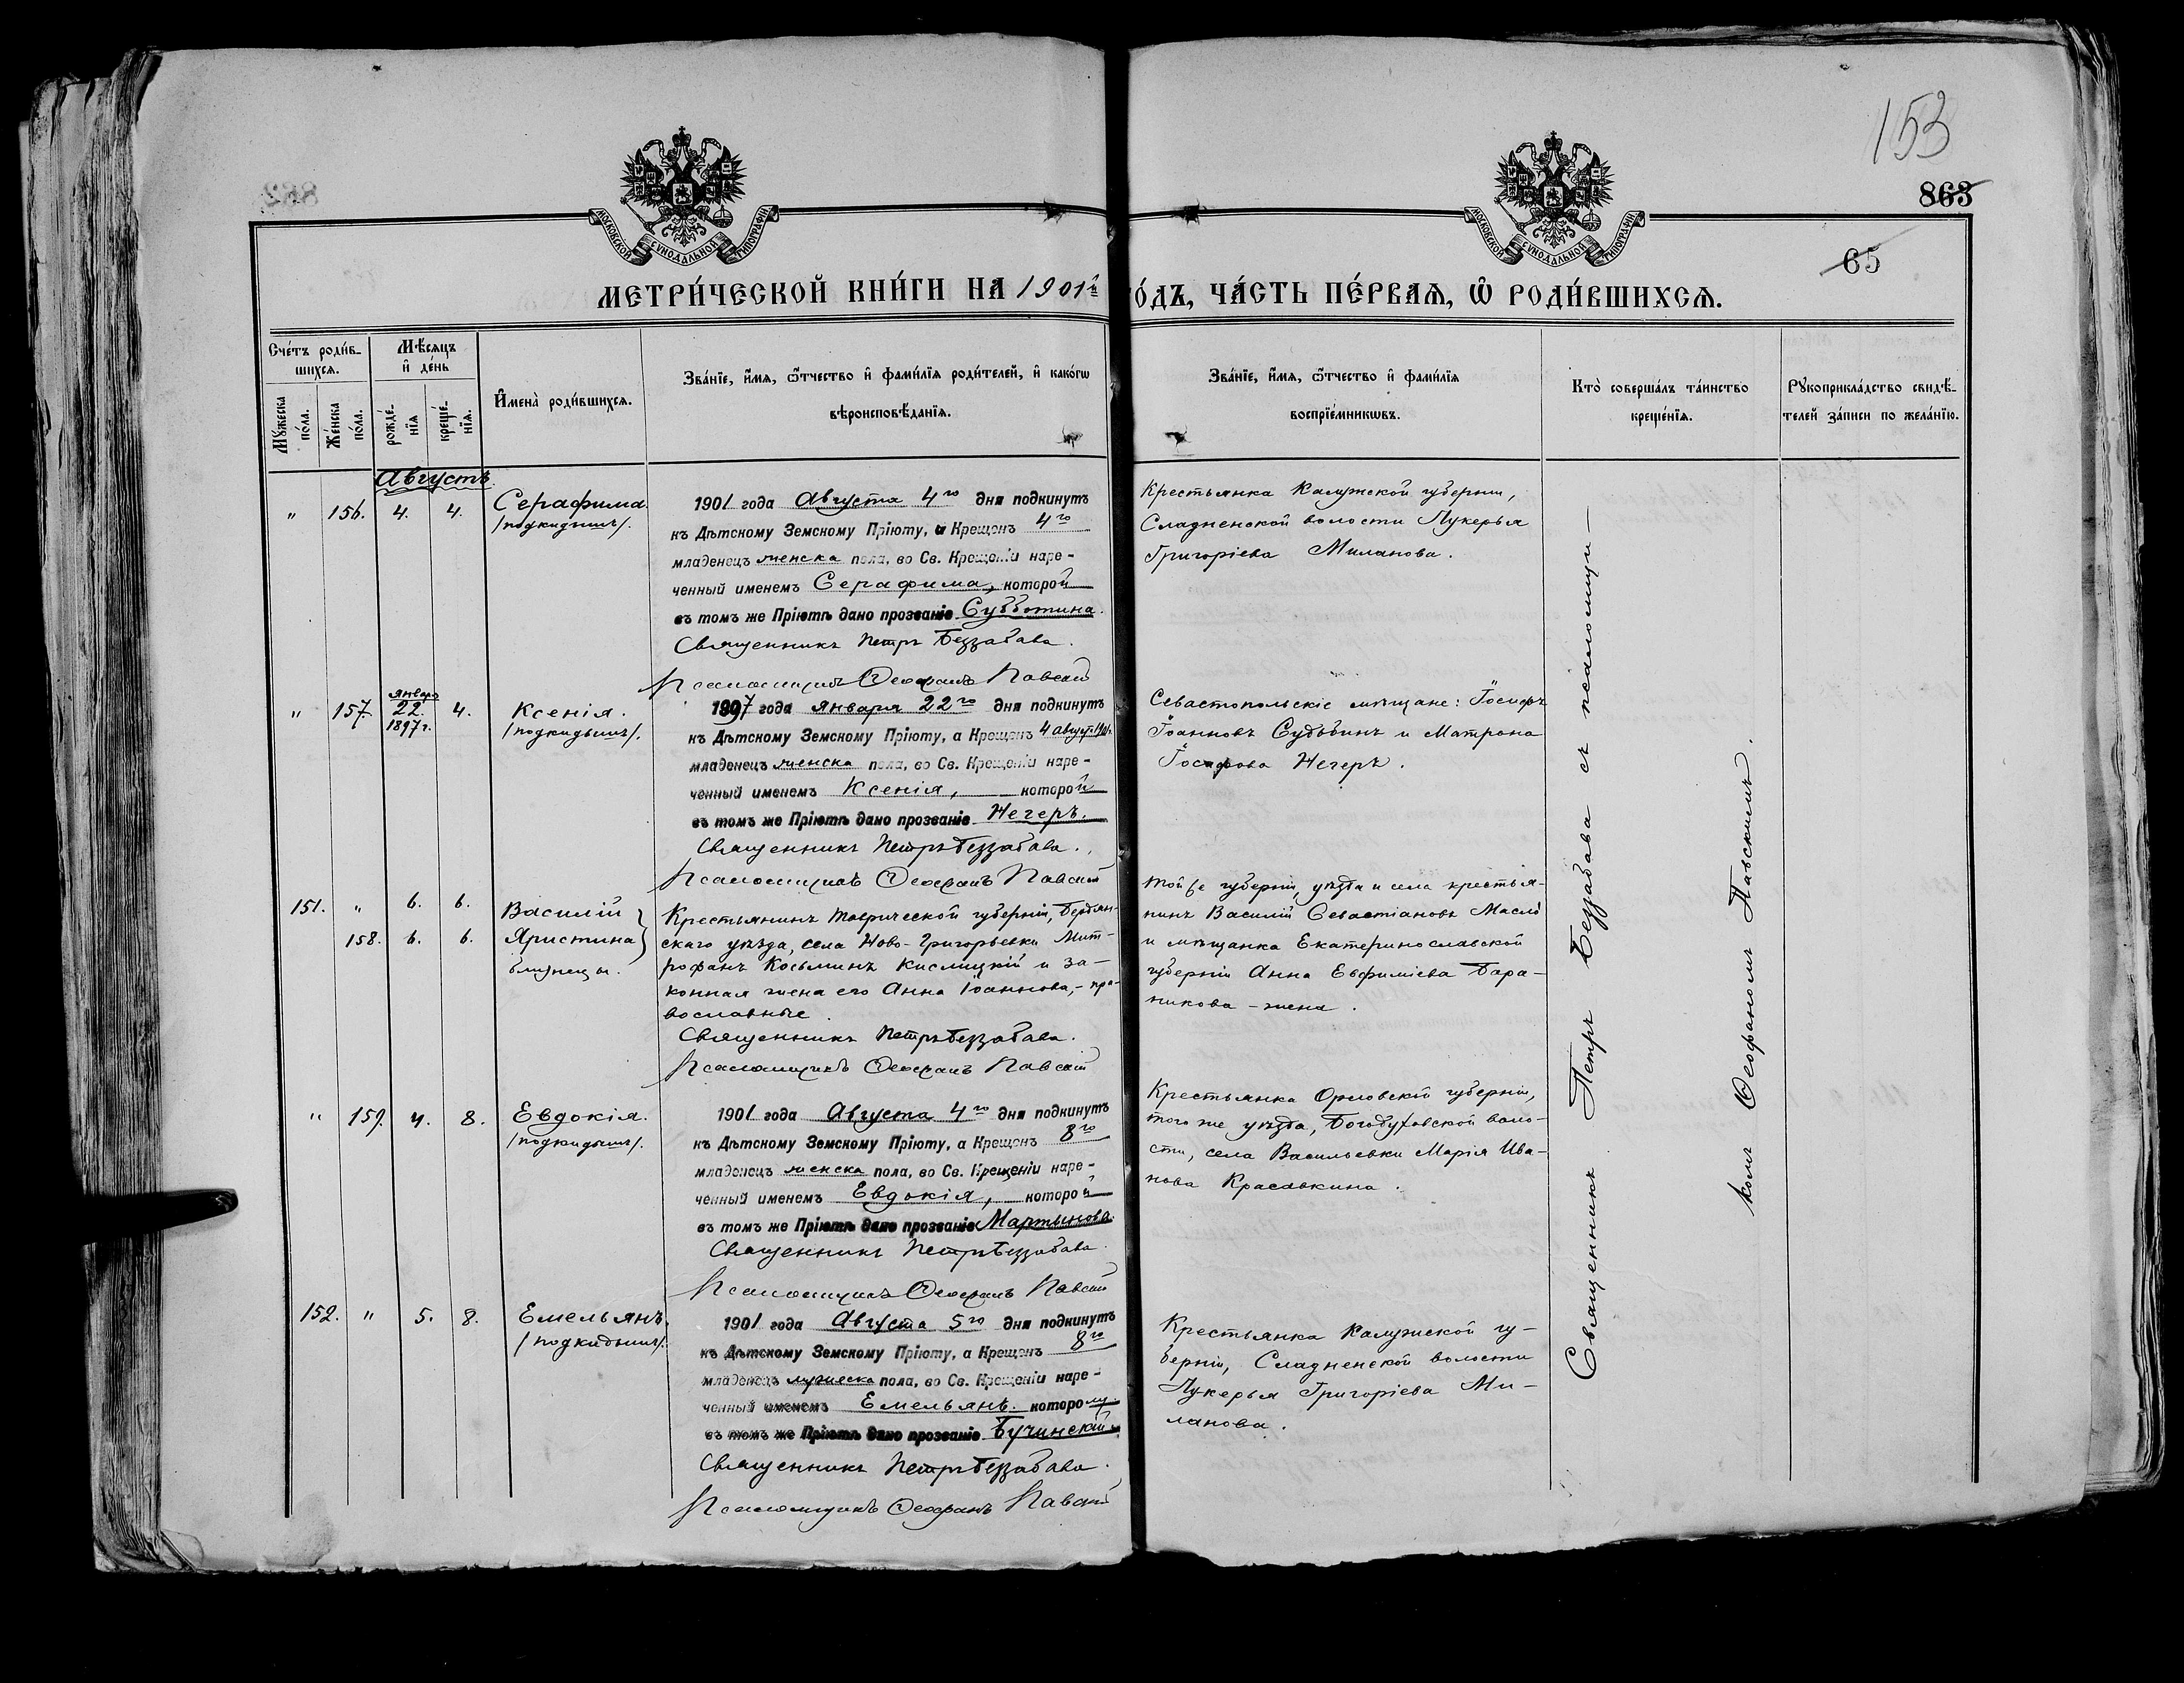 153
863
65
МОСКОВСКОЙ СУНОДАЛЬНОЙ ТИПОГРАФІИ
МОСКОВСКОЙ СУНОДАЛЬНОЙ ТИПОГРАФІИ
МЕТРИ́ЧЕСКОЙ КНИ́ГИ НА 1901й
О́ДЪ, ЧА́СТЬ ПЕ́РВАѦ, Ѡ҆ РОДИ́ВШИХСѦ.
Сче́тъ роди́в-
шихсѧ.
Мꙋ́жеска
по́ла.
Же́нска
по́ла.
Мѣ́сѧцъ
и҆ де́нь
рожде́-
нїѧ
креще́-
нїѧ.
И҆мена̀ роди́вшихсѧ.
Зва́нїе, и҆́мѧ, ѻ҆́тчество и҆ фами́лїѧ роди́телей, и҆ како́гѡ
вѣроисповѣ́данїѧ.
Зва́нїе, и҆́мѧ, ѻ҆́тчество и҆ фами́лїѧ
воспрїе́мникѡвъ.
Кто̀ соверша́лъ та́инство
креще́нїѧ.
Рꙋкоприкла́дство свидѣ́-
телей за́писи по жела́нїю.
Августъ
" 156. 4. 4. Серафима
/подкидышъ/.
1901 года Августа 4го дня подкинутъ
къ Дѣтскому Земскому Пріюту, а Крещенъ 4го
младенецъ женска пола, во Св. Крещеніи наре-
ченный именемъ Серафима, которой
въ томъ же Пріютѣ дано прозваніе Субботина.
Священникъ Петръ Беззабава.
Псаломщикъ Ѳеофанъ Павскій
Крестьянка Калужской губерніи,
Сладненской волости Лукерья
Григоріева Миланова.
" 157. Января 22. 1897г. 4. Ксенія.
/подкидышъ/.
1897 года Января 22го дня подкинутъ
къ Дѣтскому Земскому Пріюту, а Крещенъ 4 август. 1901г.
младенецъ женска пола, во Св. Крещеніи наре-
ченный именемъ Ксенія, которой
въ томъ же Пріютѣ дано прозваніе Негеръ.
Священникъ Петръ Беззабава.
Псаломщикъ Ѳеофанъ Павскій
Севастопольскіе мѣщане: Іосифъ
Іоанновъ Судьбинъ и Матрона
Іосифова Негеръ.
151. " 6. 6. Василій
158. 6. 6. Христина
близнецы.
Крестьянинъ Таврической губерніи, Бердян-
скаго уѣзда, села Ново-Григорьевки Мит-
рофанъ Косьминъ Кислицкій и за-
конная жена его Анна Іоаннова, - пра-
вославные.
Священникъ Петръ Беззабава.
Псаломщикъ Ѳеофанъ Павскій
Той же губерніи, уѣзда и села крестья-
нинъ Василій Севастіановъ Масло
и мѣщанка Екатеринославской
губерніи Анна Евфиміева Бара-
никова - жена.
" 159. 4. 8. Евдокія.
/подкидышъ/.
1901 года Августа 4го дня подкинутъ
къ Дѣтскому Земскому Пріюту, а Крещенъ 8го
младенецъ женска пола, во Св. Крещеніи наре-
ченный именемъ Евдокія, которой
въ томъ же Пріютѣ дано прозваніе Мартынова.
Священникъ Петръ Беззабава.
Псаломщикъ Ѳеофанъ Павскій
Крестьянка Орловской губерніи,
того же уѣзда, Богодуховской воло-
сти, села Васильевки Марія Ива-
нова Красавкина.
152. " 5. 8. Емельянъ.
/подкидышъ/.
1901 года Августа 5го дня подкинутъ
къ Дѣтскому Земскому Пріюту, а Крещенъ 8го
младенецъ мужеска пола, во Св. Крещеніи наре-
ченный именемъ Емельянъ. которому
въ томъ же Пріютѣ дано прозваніе Бучинскій
Священникъ Петръ Беззабава.
Псаломщикъ Ѳеофанъ Павскій
Крестьянка Калужской гу-
берніи, Сладненской волости
Лукерья Григоріева Ми-
ланова.
Священникъ Петръ Беззабава съ псаломщи-
комъ Ѳеофаномъ Павскимъ.